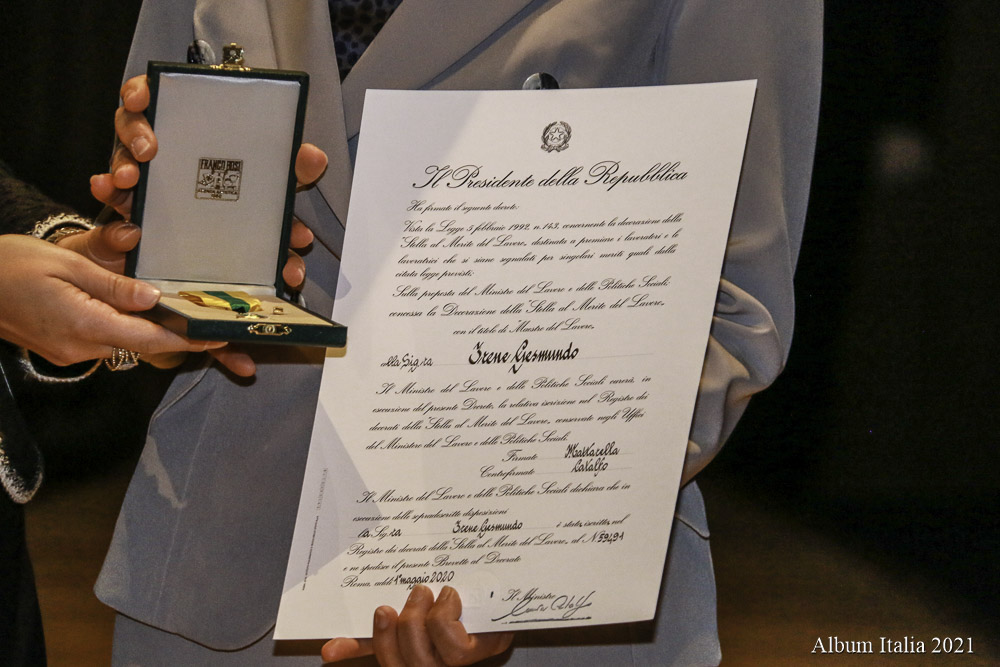 FRANCO ROSI
Il Presidente della Repubblica
Ha firmato il seguente decreto:
Vista la Legge 5 febbraio 1992, n. 143, concernente la decorazione della
"Stella al Merito del Lavoro" destinata a premiare i lavoratori e le
lavoratrici che si siano segnalati per singolari meriti quali dalla
citata legge previsti;
Sulla proposta del Ministro del Lavoro e delle Politiche Sociali;
concessa la Decorazione della "Stella al Merito del Lavoro"
con il titolo di "Maestro del Lavoro"
alla Sig.ra Irene Gesmundo
Il Ministro del Lavoro e delle Politiche Sociali curerà, in
esecuzione del presente Decreto, la relativa iscrizione nel Registro dei
decorati della "Stella al Merito del Lavoro" conservato negli Uffici
del Ministero del Lavoro e delle Politiche Sociali.
Firmato Mattarella
Controfirmato Catalfo
Il Ministro del Lavoro e delle Politiche Sociali dichiara che in
esecuzione delle sopradescritte disposizioni
la Sig.ra Irene Gesmundo è stata iscritta nel
Registro dei decorati della "Stella al Merito del Lavoro" al N. 59491
e ne spedisce il presente Brevetto al Decorato
Roma, addì 1° maggio 2020
Il Ministro
Album Italia 2021